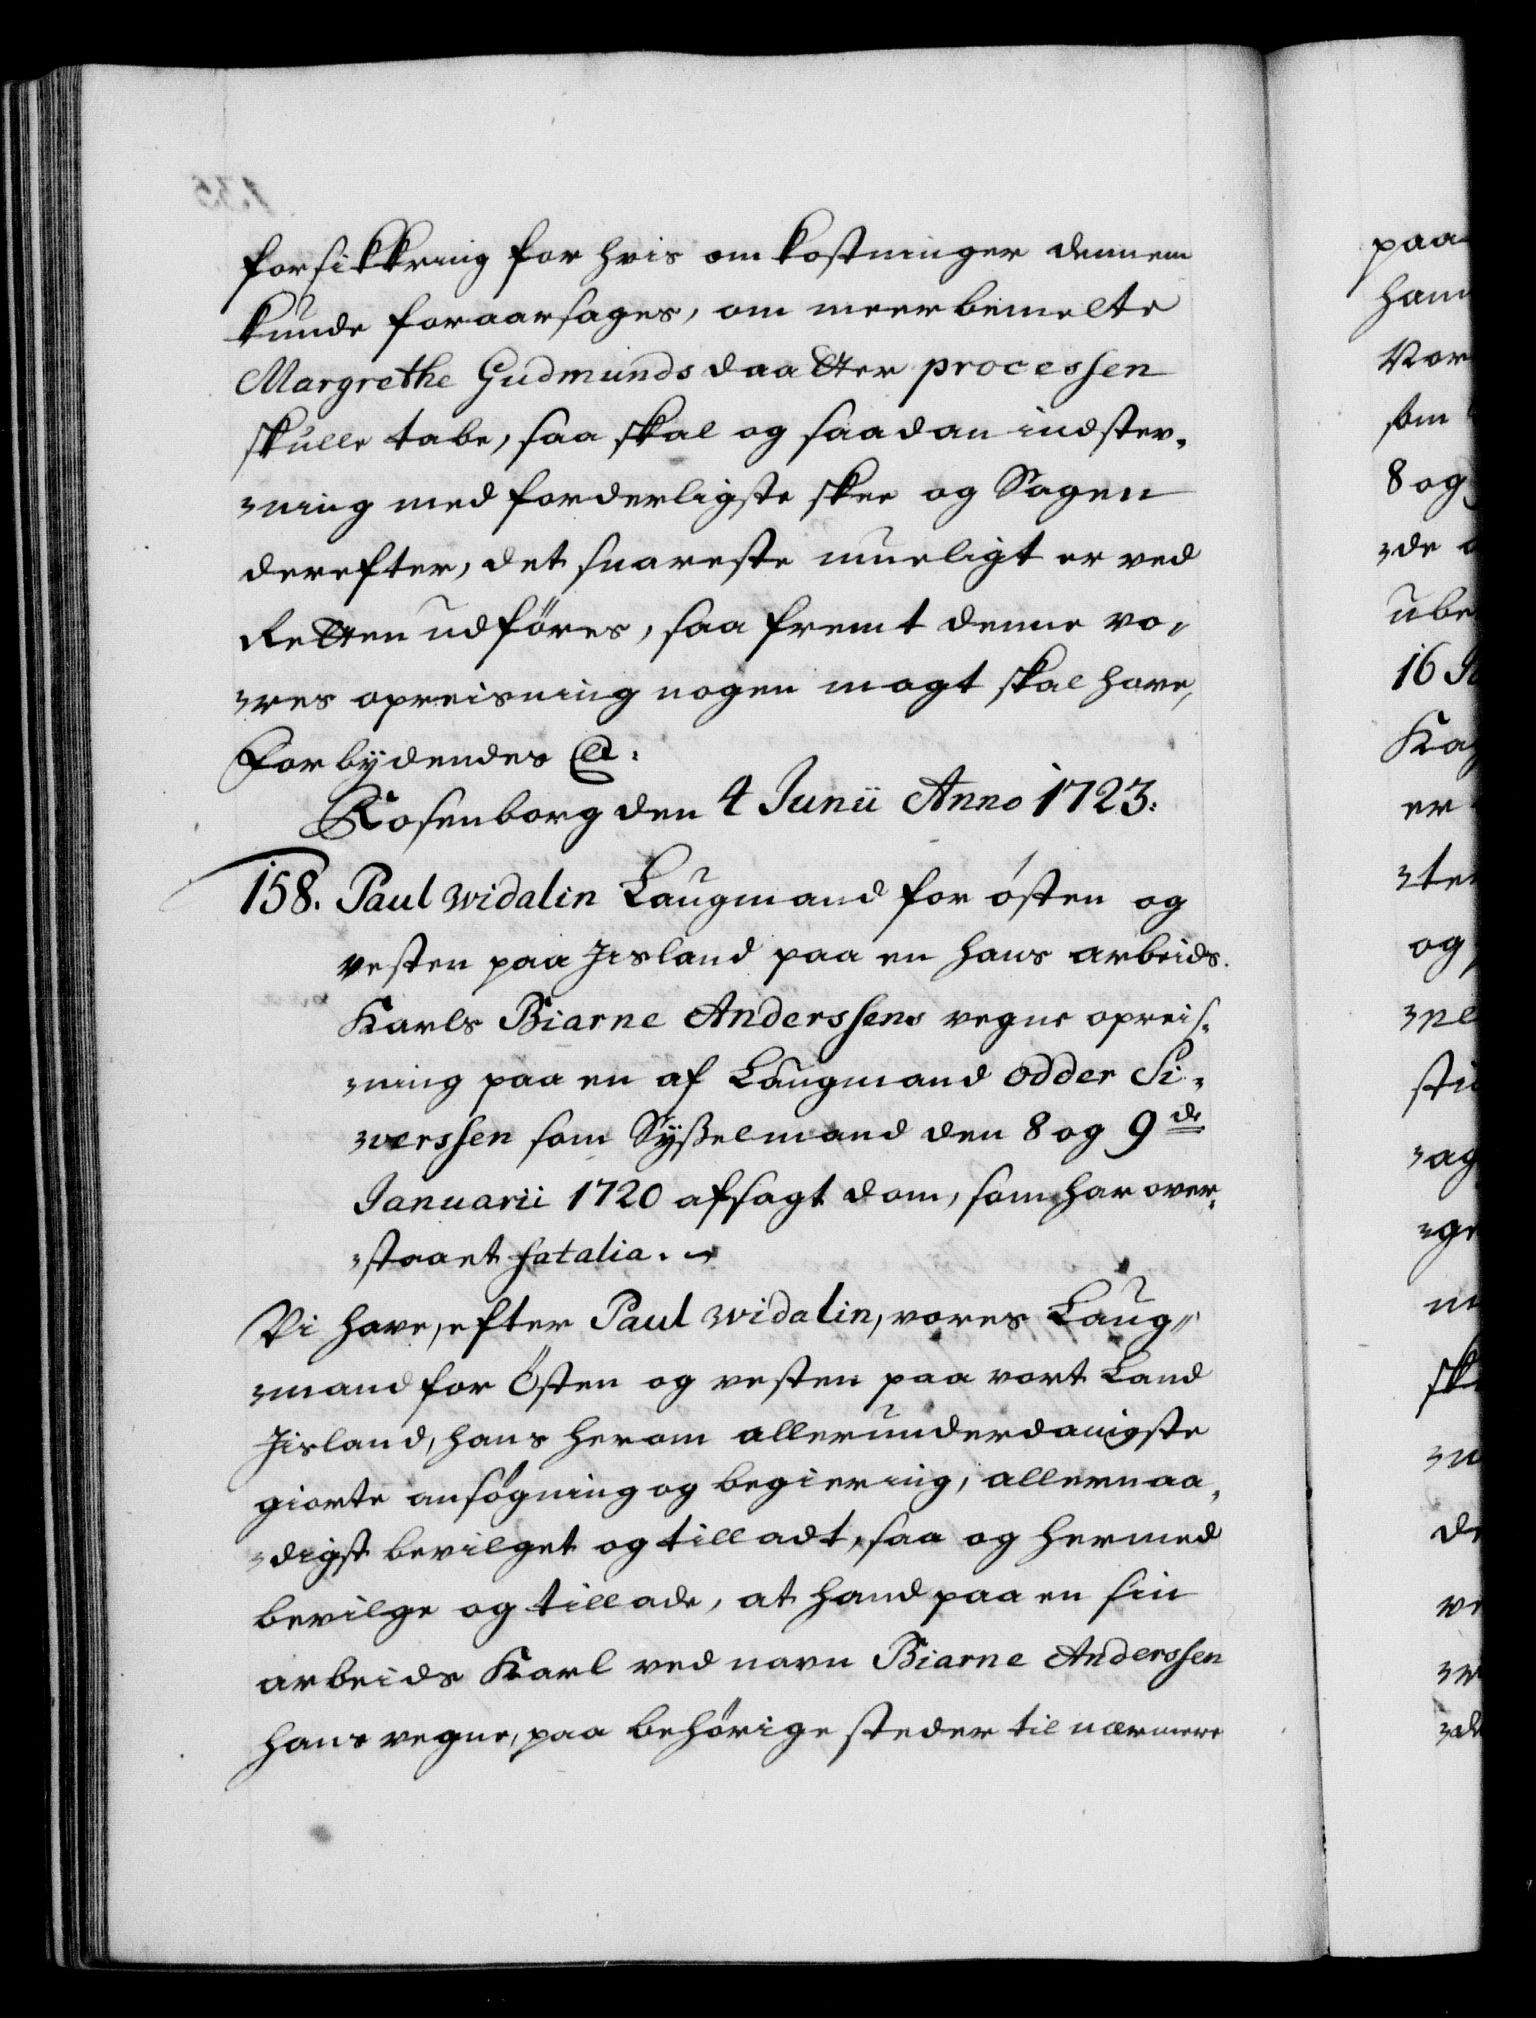 forsikkring for hvis omkostninger dennem
kunde foraarsages, om meerbemelte
Margrethe Gudmundsdaatter processen
skulle tabe, saa skal og saadan indstev-
-ning med forderligste skee og Sagen
derefter, det snareste mueligt er ved
Retten udföres, saafremt denne vo-
-res opreisning nogen magt skal have,
Forbydendes &:
Rosenborg den 4 Junii Anno 1723:
158. Paul Widalin Laugmand for østen og
vesten paa Jisland paa en hans arbeids-
Karls Biarne Anderssens vegne opreis-
-ning paa en af Laugmand Odder Si-
-verssen som Sysselmand den 8 og 9de
Januarii 1720 afsagt dom, som har over-
-staaet fatalia.
Vi have, efter Paul Widalin, vores Laug-
-mand for Östen og vesten paa vort Land
Jisland, hans herom allerunderdanigste
giorte ansøgning og begiering, allernaa-
-digst bevilget og tilladt, saa og hermed
bevilge og tillade, at hand paa en sin
arbeids Karl ved navn Biarne Anderssen
hans vegne, paa behörige steder til nærmere
paa
8 og
16